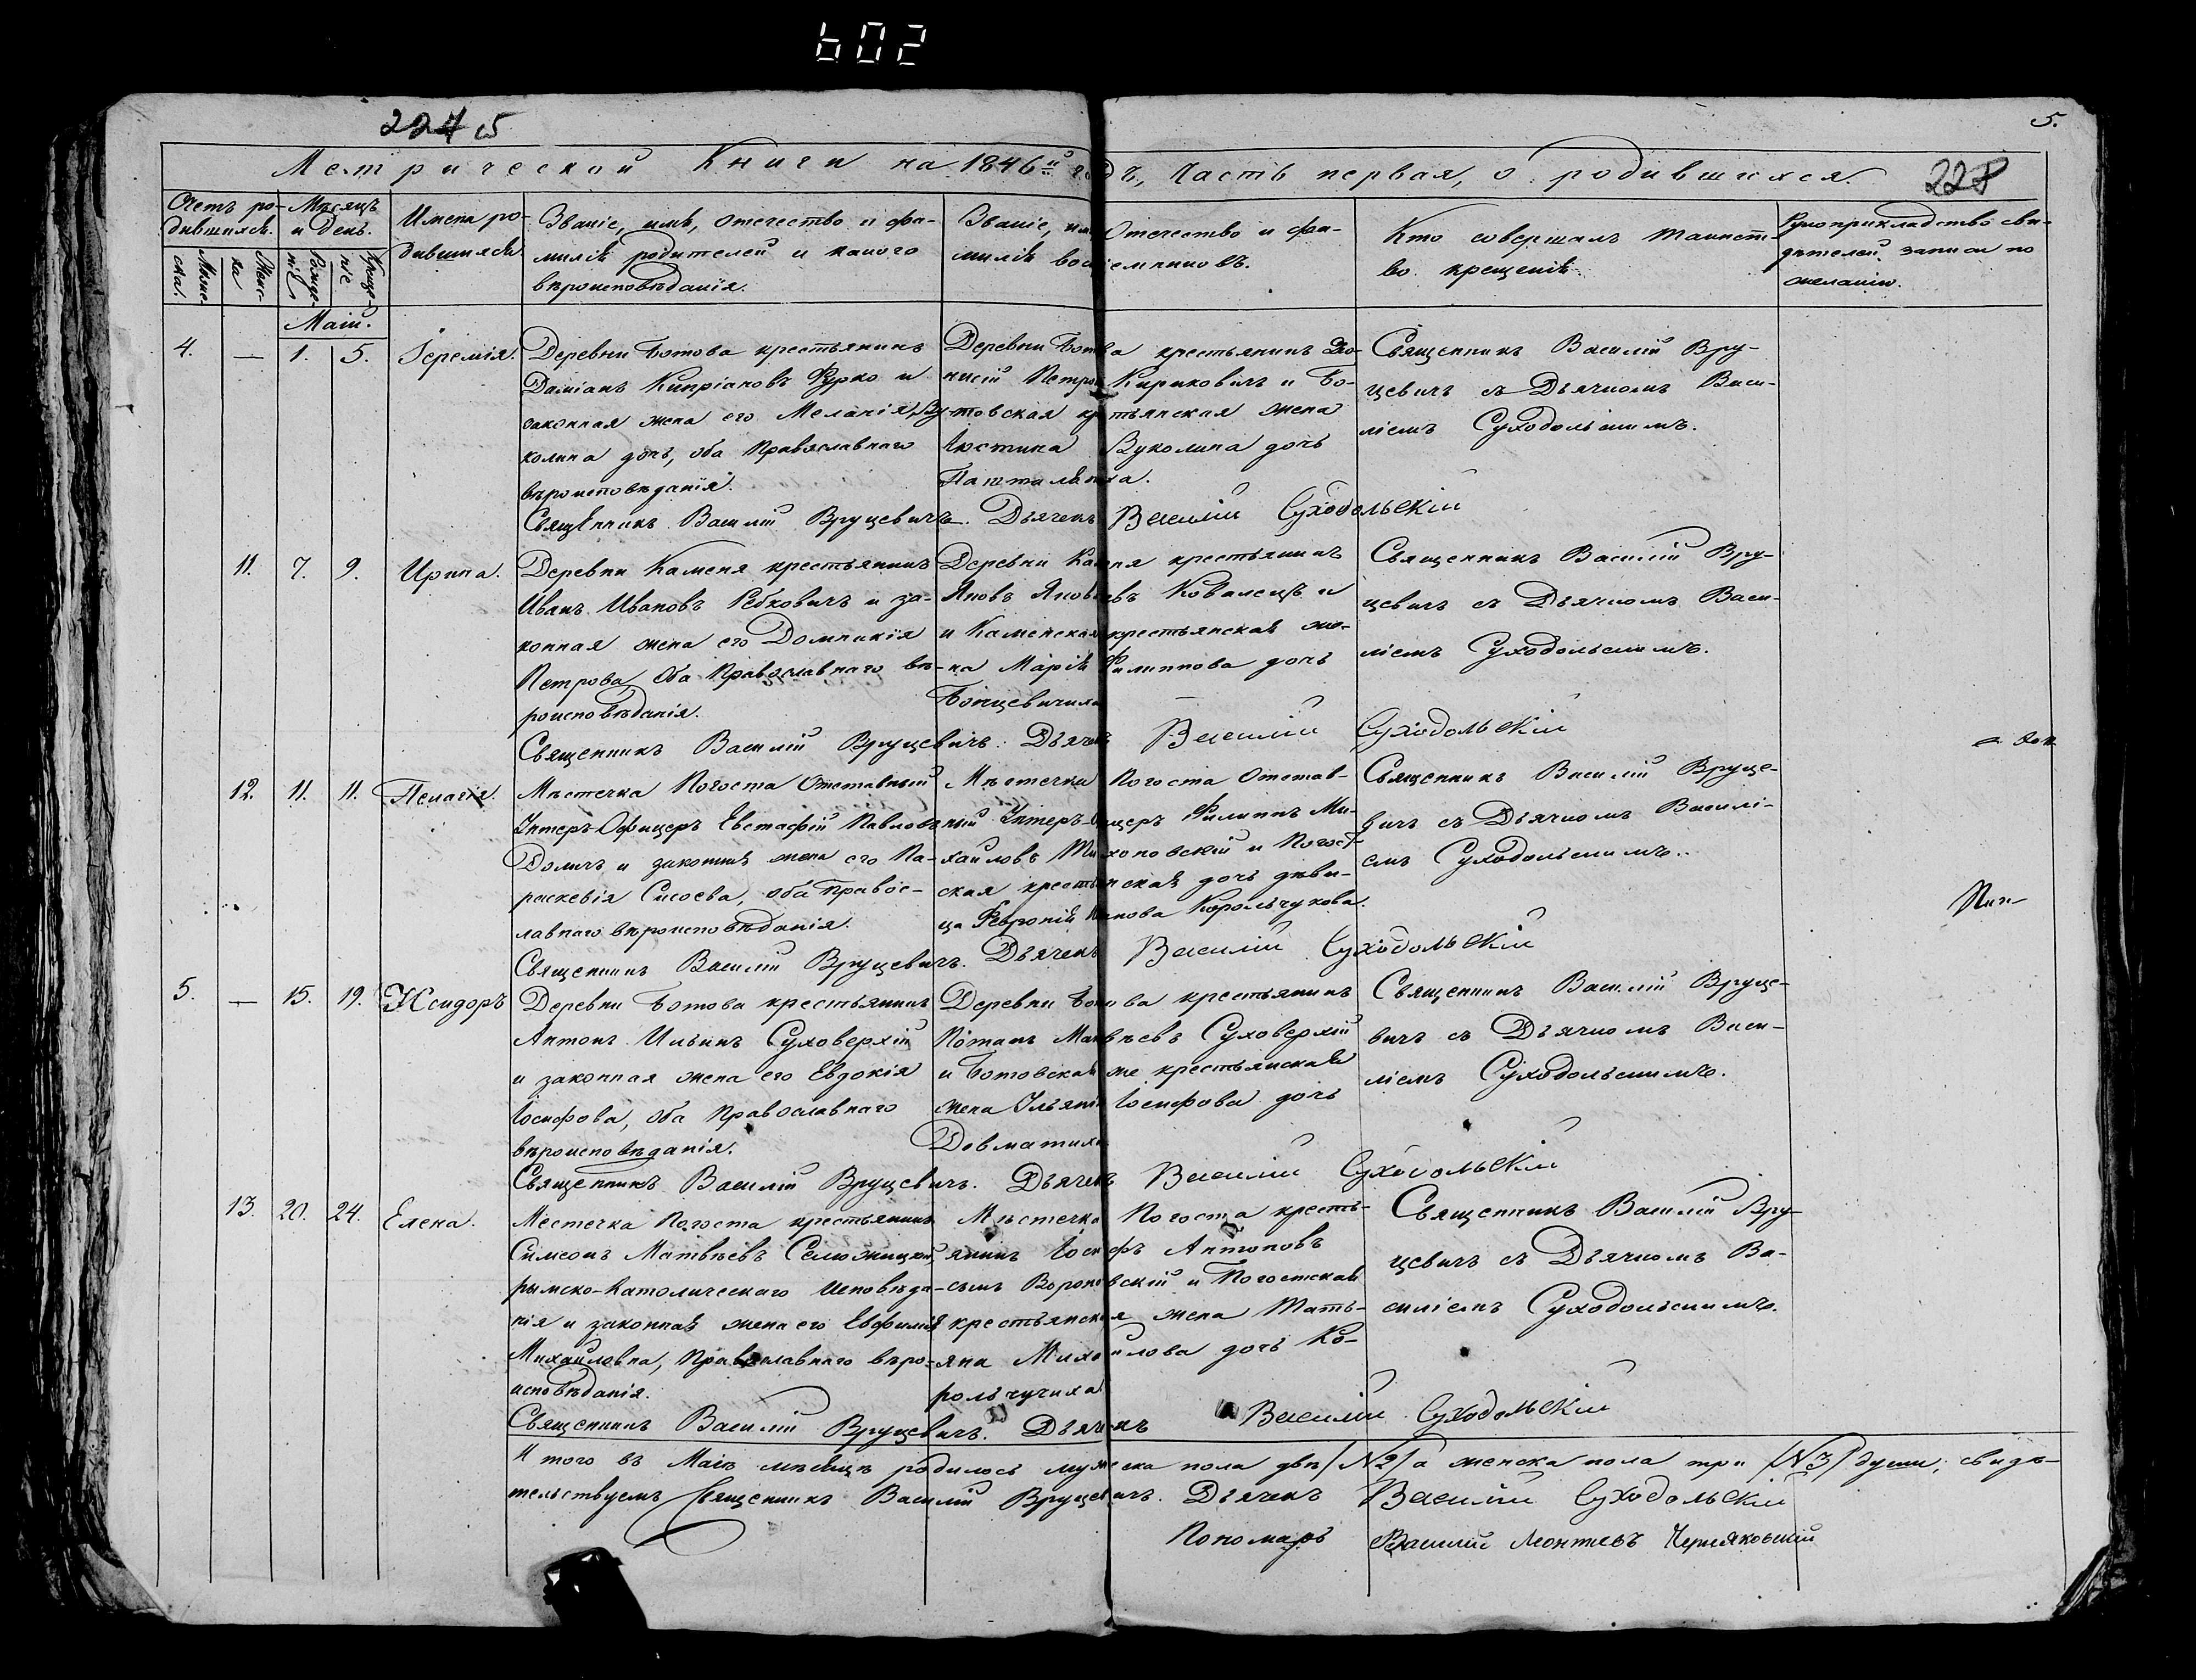 602
2245
5.
Метрической Книги на 1846й годъ, Часть первая, о родившихся.
228
Счетъ родившихся.
Мужеска.
Женска
Мѣсяцъ и День.
Рожденіе
Крещеніе
Имена родившихся.
Званіе, имя, отечество и фамилія родителей и какого вѣроисповѣданія.
Званіе, имя Отечество и фамилія воспріемниковъ.
Кто совершалъ таинство крещенія.
Рукоприкладство свидѣтелей записи по желанію.
Маій.
4. — 1. 5. Іеремія.
Деревни Ботова крестьянинъ
Даміанъ Кипріановъ Фурко и
законная жена его Меланія Ву-
колина дочь, оба Православнаго
вѣроисповѣданія.
Деревни Ботова крестьянинъ Діо-
нисій Петровъ Кирикович и Бо-
товская крестьянская жена
Іюстина Вуколина дочь
Священникъ Василій Вру-
цевичъ съ Дьячкомъ Васи-
ліемъ Суходольскимъ.
Священникъ Василій Вруцевичъ. Дьячекъ Василій Суходольскій
11. 7. 9. Ирина.
Деревни Каменя крестьянинъ
Иванъ Ивановъ Ребковичъ и за-
конная жена его Домникія
Петрова, Оба Православнаго вѣ-
роисповѣданія.
Деревни Каменя крестьянинъ
Яковъ Яковлевъ Ковалецъ и
и Каменская крестьянская же-
на Марія Филиппова дочь
Священникъ Василій Вру-
цевичъ съ Дьячкомъ Васи-
ліемъ Суходольскимъ.
Священникъ Василій Вруцевичъ. Дьячекъ Василій Суходольскій
12. 11. 11. Пелагія.
Мѣстечка Погоста Отставный
Унтеръ-Офицеръ Евстафій Павловъ
Доличъ и законная жена его Па-
раскевія Сисоева, оба Правос-
лавнаго вѣроисповѣданія.
Мѣстечка Погоста Отстав-
ный Унтеръ-Офицеръ Филиппъ Ми-
хайловъ Тихоновскій и Погост-
ская крестьянская дочь дѣви-
ца Февронія Корольчукова.
Священникъ Василій Вруце-
вичъ съ Дьячкомъ Василі-
емъ Суходольскимъ.
Священникъ Василій Вруцевичъ. Дьячекъ Василій Суходольскій
5. — 15. 19. Исидоръ
Деревни Ботова крестьянинъ
Антонъ Ильинъ Суховерхій
и законная жена его Евдокія
Іосифова, оба Православнаго
вѣроисповѣданія.
Деревни Ботова крестьянинъ
Потапъ Матвѣевъ Суховерхій
и Ботовская же крестьянская
жена Ульянія Іосифова дочь
Довматиха
Священникъ Василій Вруце-
вичъ съ Дьячкомъ Васи-
ліемъ Суходольскимъ.
Священникъ Василій Вруцевичъ. Дьячекъ Василій Суходольскій
13. 20. 24. Елена.
Местечка Погоста крестьянинъ
Симеонъ Матвѣевъ Селюжицкій,
рымско-Католическаго Исповѣда-
нія и законная жена его Евфимія
Михайловна, Православнаго вѣро-
исповѣданія.
Мѣстечка Погоста кресть-
янинъ Іосифъ Антоновъ
сынъ Вороновскій и Погостская
крестьянская жена Тать-
яна Михайлова дочь Ко-
рольчучиха
Священникъ Василій Вру-
цевичъ съ Дьячкомъ Ва-
силіемъ Суходольскимъ.
Священникъ Василій Вруцевичъ. Дьячекъ Василій Суходольскій
Итого въ Маіѣ мѣсяцѣ родилось мужеска пола двѣ /№2/ а женска пола три /№3/ души; свидѣ-
тельствуемъ Священникъ Василій Вруцевичъ. Дьячекъ Василій Суходольскій
Пономарь Василій Леонтіевъ Черняковскій